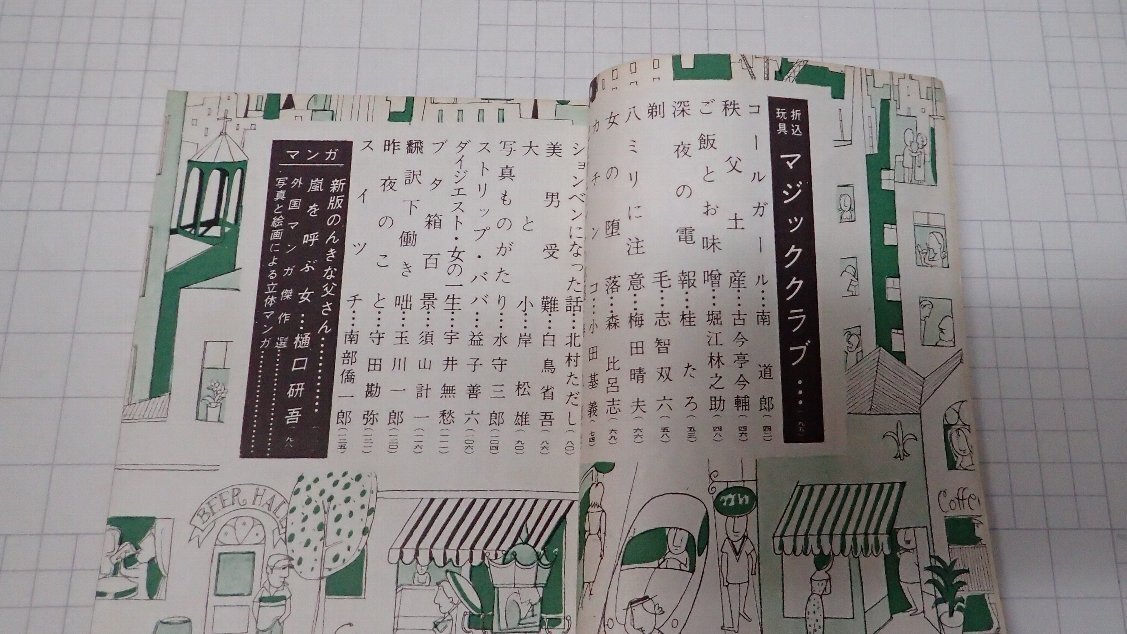 折込玩具 マジッククラブ…
コールガール・南道郎(四二)
秩父土産・古今亭今輔(四六)
ご飯とお味噌・堀江林之助(四八)
深夜の電報・桂たろ(五三)
剃毛・志智双六(五八)
八ミリに注意・梅田晴夫(六六)
女の堕落・森比呂志(六九)
カチンコ・小田基義(七四)
ションベンになった話・北村ただし(八〇)
美男受難・白鳥省吾(八六)
大と小・岸松雄(九〇)
写真ものがたり・水守三郎(一〇四)
ストリップ・ババ・益子善六(一〇六)
ダイジェスト・女の一生・宇井無愁(一一二)
ブタ箱百景・須山計一(一二六)
飜訳下働き咄・玉川一郎(一三〇)
昨夜のこと・守田勘弥(一三二)
スイッチ・南部僑一郎(一三五)
マンガ
新版のんきな父さん…………
嵐を呼ぶ女…樋口研吾
外国マンガ傑作選…………
写真と絵画による立体マンガ…………
BEER HALL
Coffe